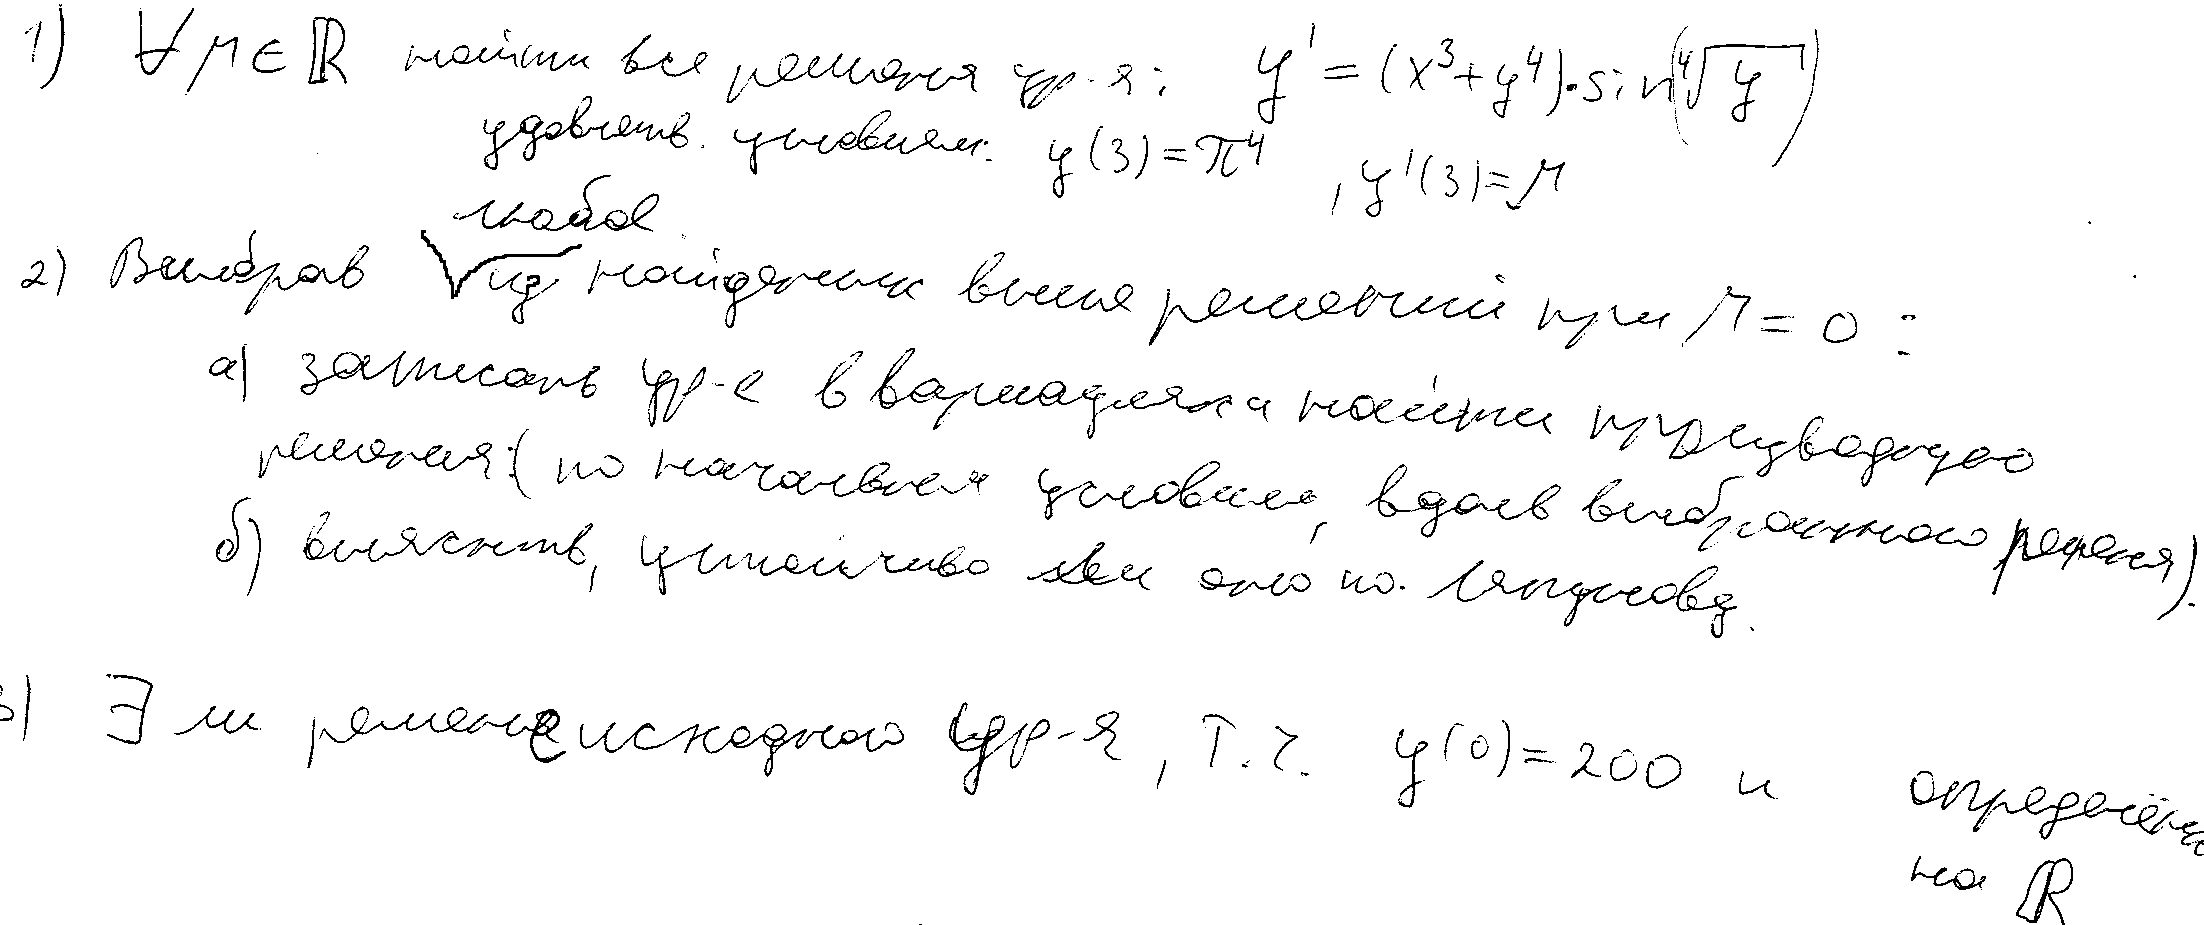 1) ∀ μ ∈ ℝ найти все решения ур-я: y' = (x³+y⁴)·sin(⁴√y)
удовлетв. условиям: y(3)=π⁴, y'(3)=μ
любое
2) Выбрав √из найденных выше решений при μ=0:
а) записать ур-е в вариациях и найти производную
решения (по начальным условиям, вдоль выбранного решения).
б) выяснить, устойчиво ли оно по Ляпунову.
3) ∃ ли решение исходного ур-я, т.ч. y(0)=200 и определено
на ℝ